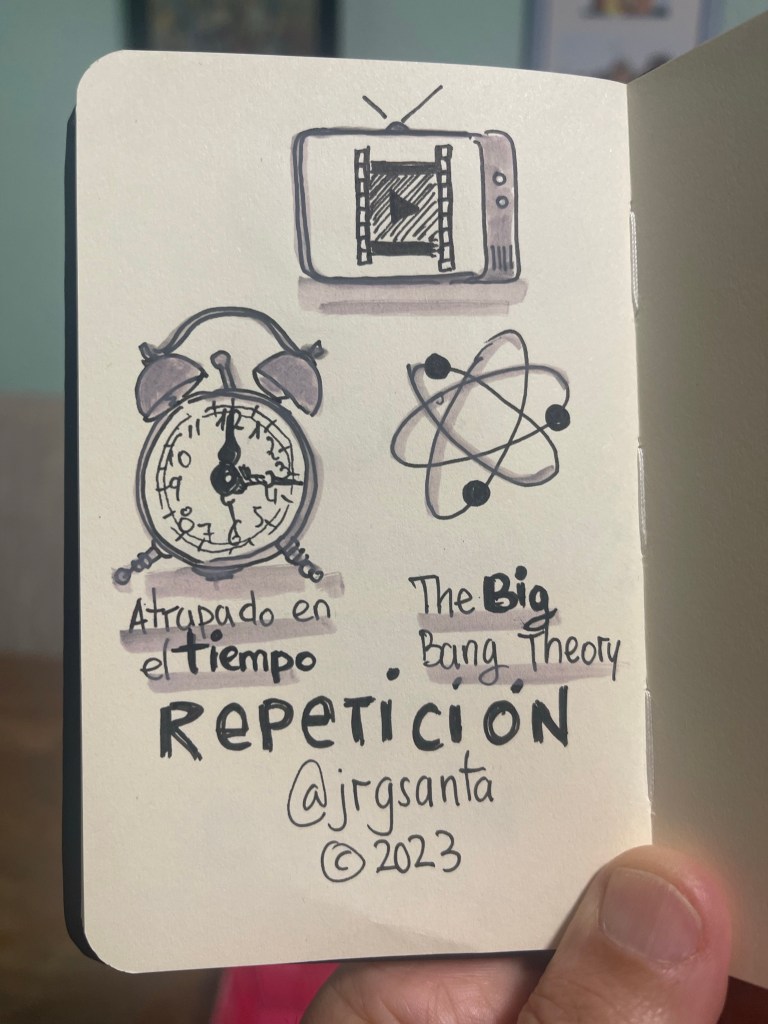 12
1
2
3
4
5
6
7
8
9
10
11
Atrapado en
el tiempo
The Big
Bang Theory
REPETICIÓN
@jrgsanta
© 2023